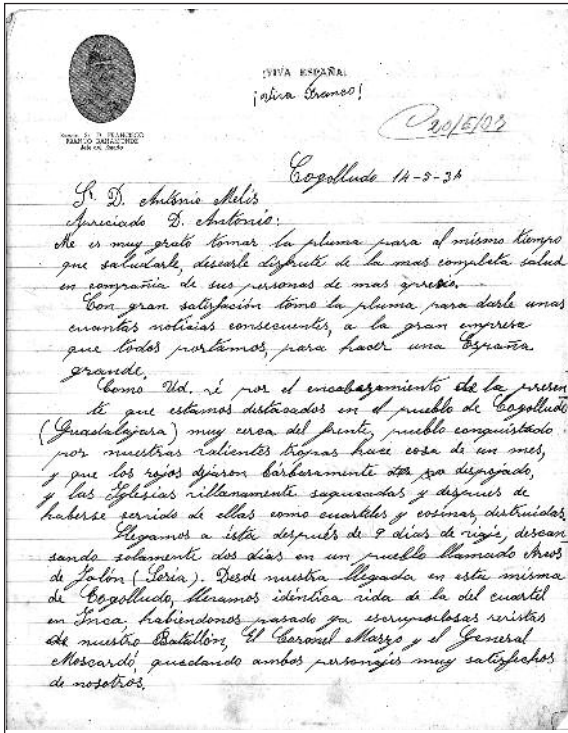 ¡VIVA ESPAÑA!
¡Viva Franco!
Excmo. Sr. D. FRANCISCO
FRANCO BAHAMONDE
Jefe del Estado
20/5/03
Cogolludo 14-5-3
Sr. D. Antonio Melis
Apreciado D. Antonio:
Me es muy grato tomar la pluma para al mismo tiempo
que saludarle, desearle disfrute de la mas completa salud
en compañia de sus personas de mas aprecio.
Con gran satisfacción tomo la pluma para darle unas
cuantas noticias consecuentes, a la gran empresa
que todos portamos, para hacer una España
grande.
Como Ud. vé por el encabezamiento de la presen
te que estamos destacados en el pueblo de Cogolludo
(Guadalajara) muy cerca del frente, pueblo conquistado
por nuestras valientes tropas hace cosa de un mes,
y que los rojos dejaron bárbaramente despojado,
y las Iglesias villanamente saqueadas y despues de
haberse servido de ellas como cuarteles y cosinas, distruidas.
Llegamos a ésta después de 9 días de viaje, descan
sando solamente dos días en un pueblo llamado Arcos
de Jalón (Soria). Desde nuestra llegada en esta misma
de Cogolludo, llevamos idéntica vida de la del cuartel
en Inca, habiendonos pasado ya escrupulosas revistas
de nuestro Batallón, El Coronel Marzo y el General
Moscardó, quedando ambos personajes muy satisfechos
de nosotros.